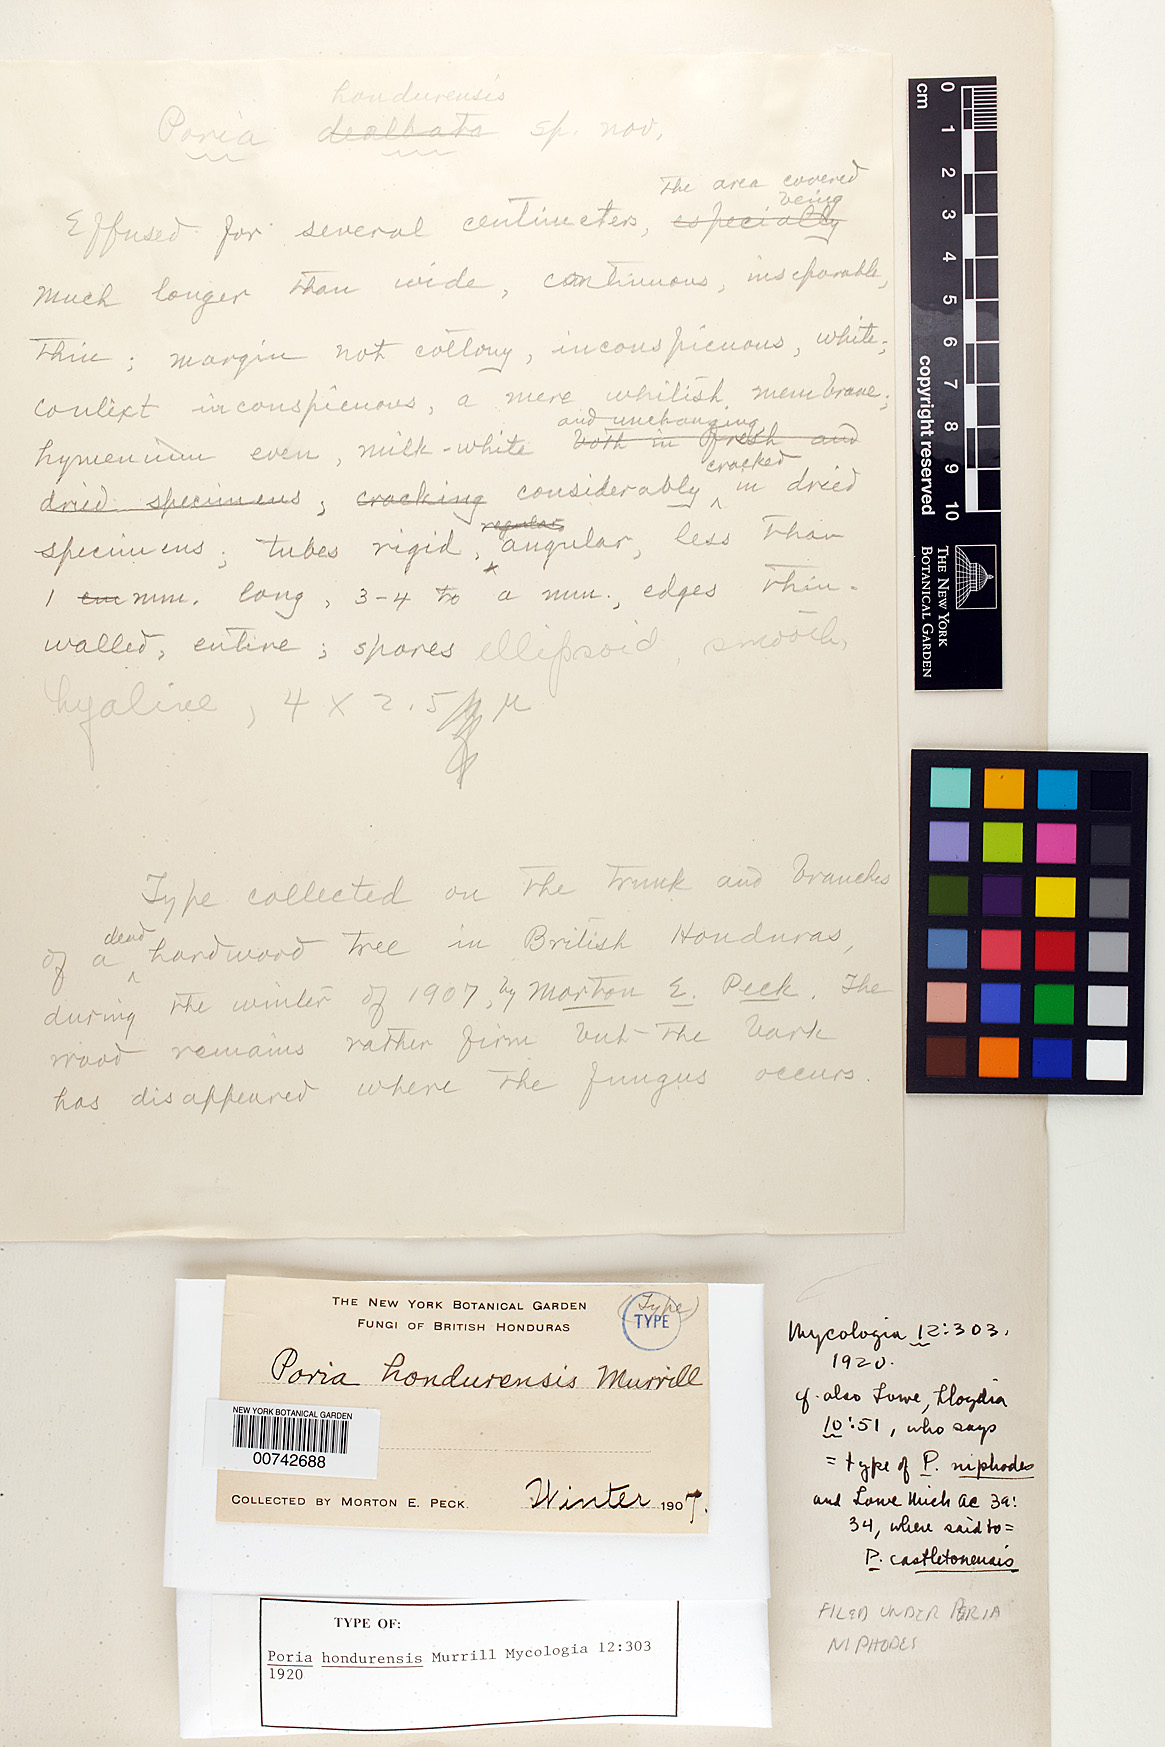 hondurensis
Poria dealbata sp. nov.
The area covered
being
Effused for several centimeters, especially
much longer than wide, continuous, inseparable,
thin; margin not cottony, inconspicuous, white;
context inconspicuous, a mere whitish membrane;
and unchanging
hymenium even, milk-white both in fresh and
cracked
dried specimens; cracking considerably ^ in dried
regular,
specimens; tubes rigid, angular, less than
1 cm mm. long, 3-4 to a mm., edges thin-
walled, entire; spores ellipsoid, smooth,
hyaline, 4 x 2.5 µ
Type collected on the trunk and branches
dead
of a ^ hardwood tree in British Honduras,
during the winter of 1907, by Morton E. Peck. The
wood remains rather firm but the bark
has disappeared where the fungus occurs.
cm 0 1 2 3 4 5 6 7 8 9 10
copyright reserved
THE NEW YORK
BOTANICAL GARDEN
THE NEW YORK BOTANICAL GARDEN
FUNGI OF BRITISH HONDURAS
(Type)
TYPE
Poria hondurensis Murrill
NEW YORK BOTANICAL GARDEN
00742688
COLLECTED BY MORTON E. PECK. Winter 1907.
Mycologia 12:303.
1920.
cf. also Lowe, Lloydia
10:51, who says
= type of P. niphodes
and Lowe Mich Ac 39:
34, where said to =
P. castletonensis
FILED UNDER PORIA
NIPHODES
TYPE OF:
Poria hondurensis Murrill Mycologia 12:303
1920